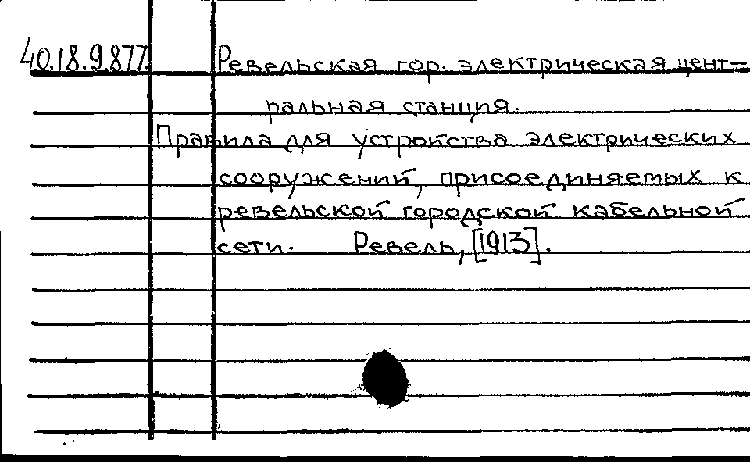 40.18.9.877. Ревельская гор. электрическая цент-
ральная станция.
Правила для устройства электрических
сооружений, присоединяемых к
ревельской городской кабельной
сети. Ревель, [1913].